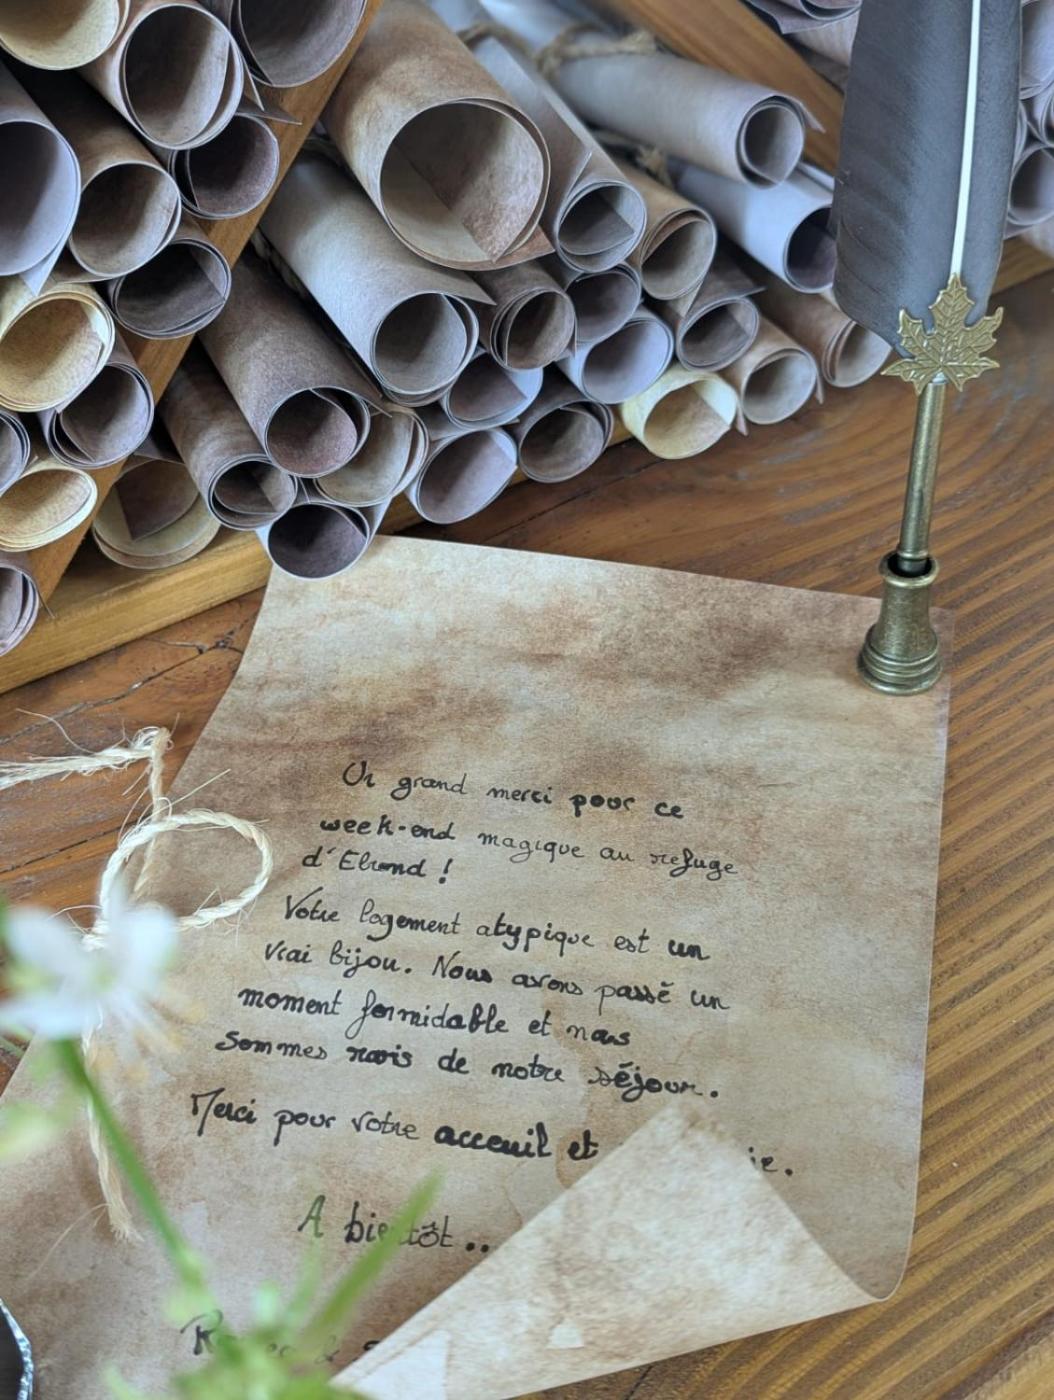 Un grand merci pour ce
week-end magique au refuge
d'Elrond !
Votre logement atypique est un
vrai bijou. Nous avons passé un
moment formidable et nous
sommes ravis de notre séjour.
Merci pour votre acceuil et
A bientôt ..